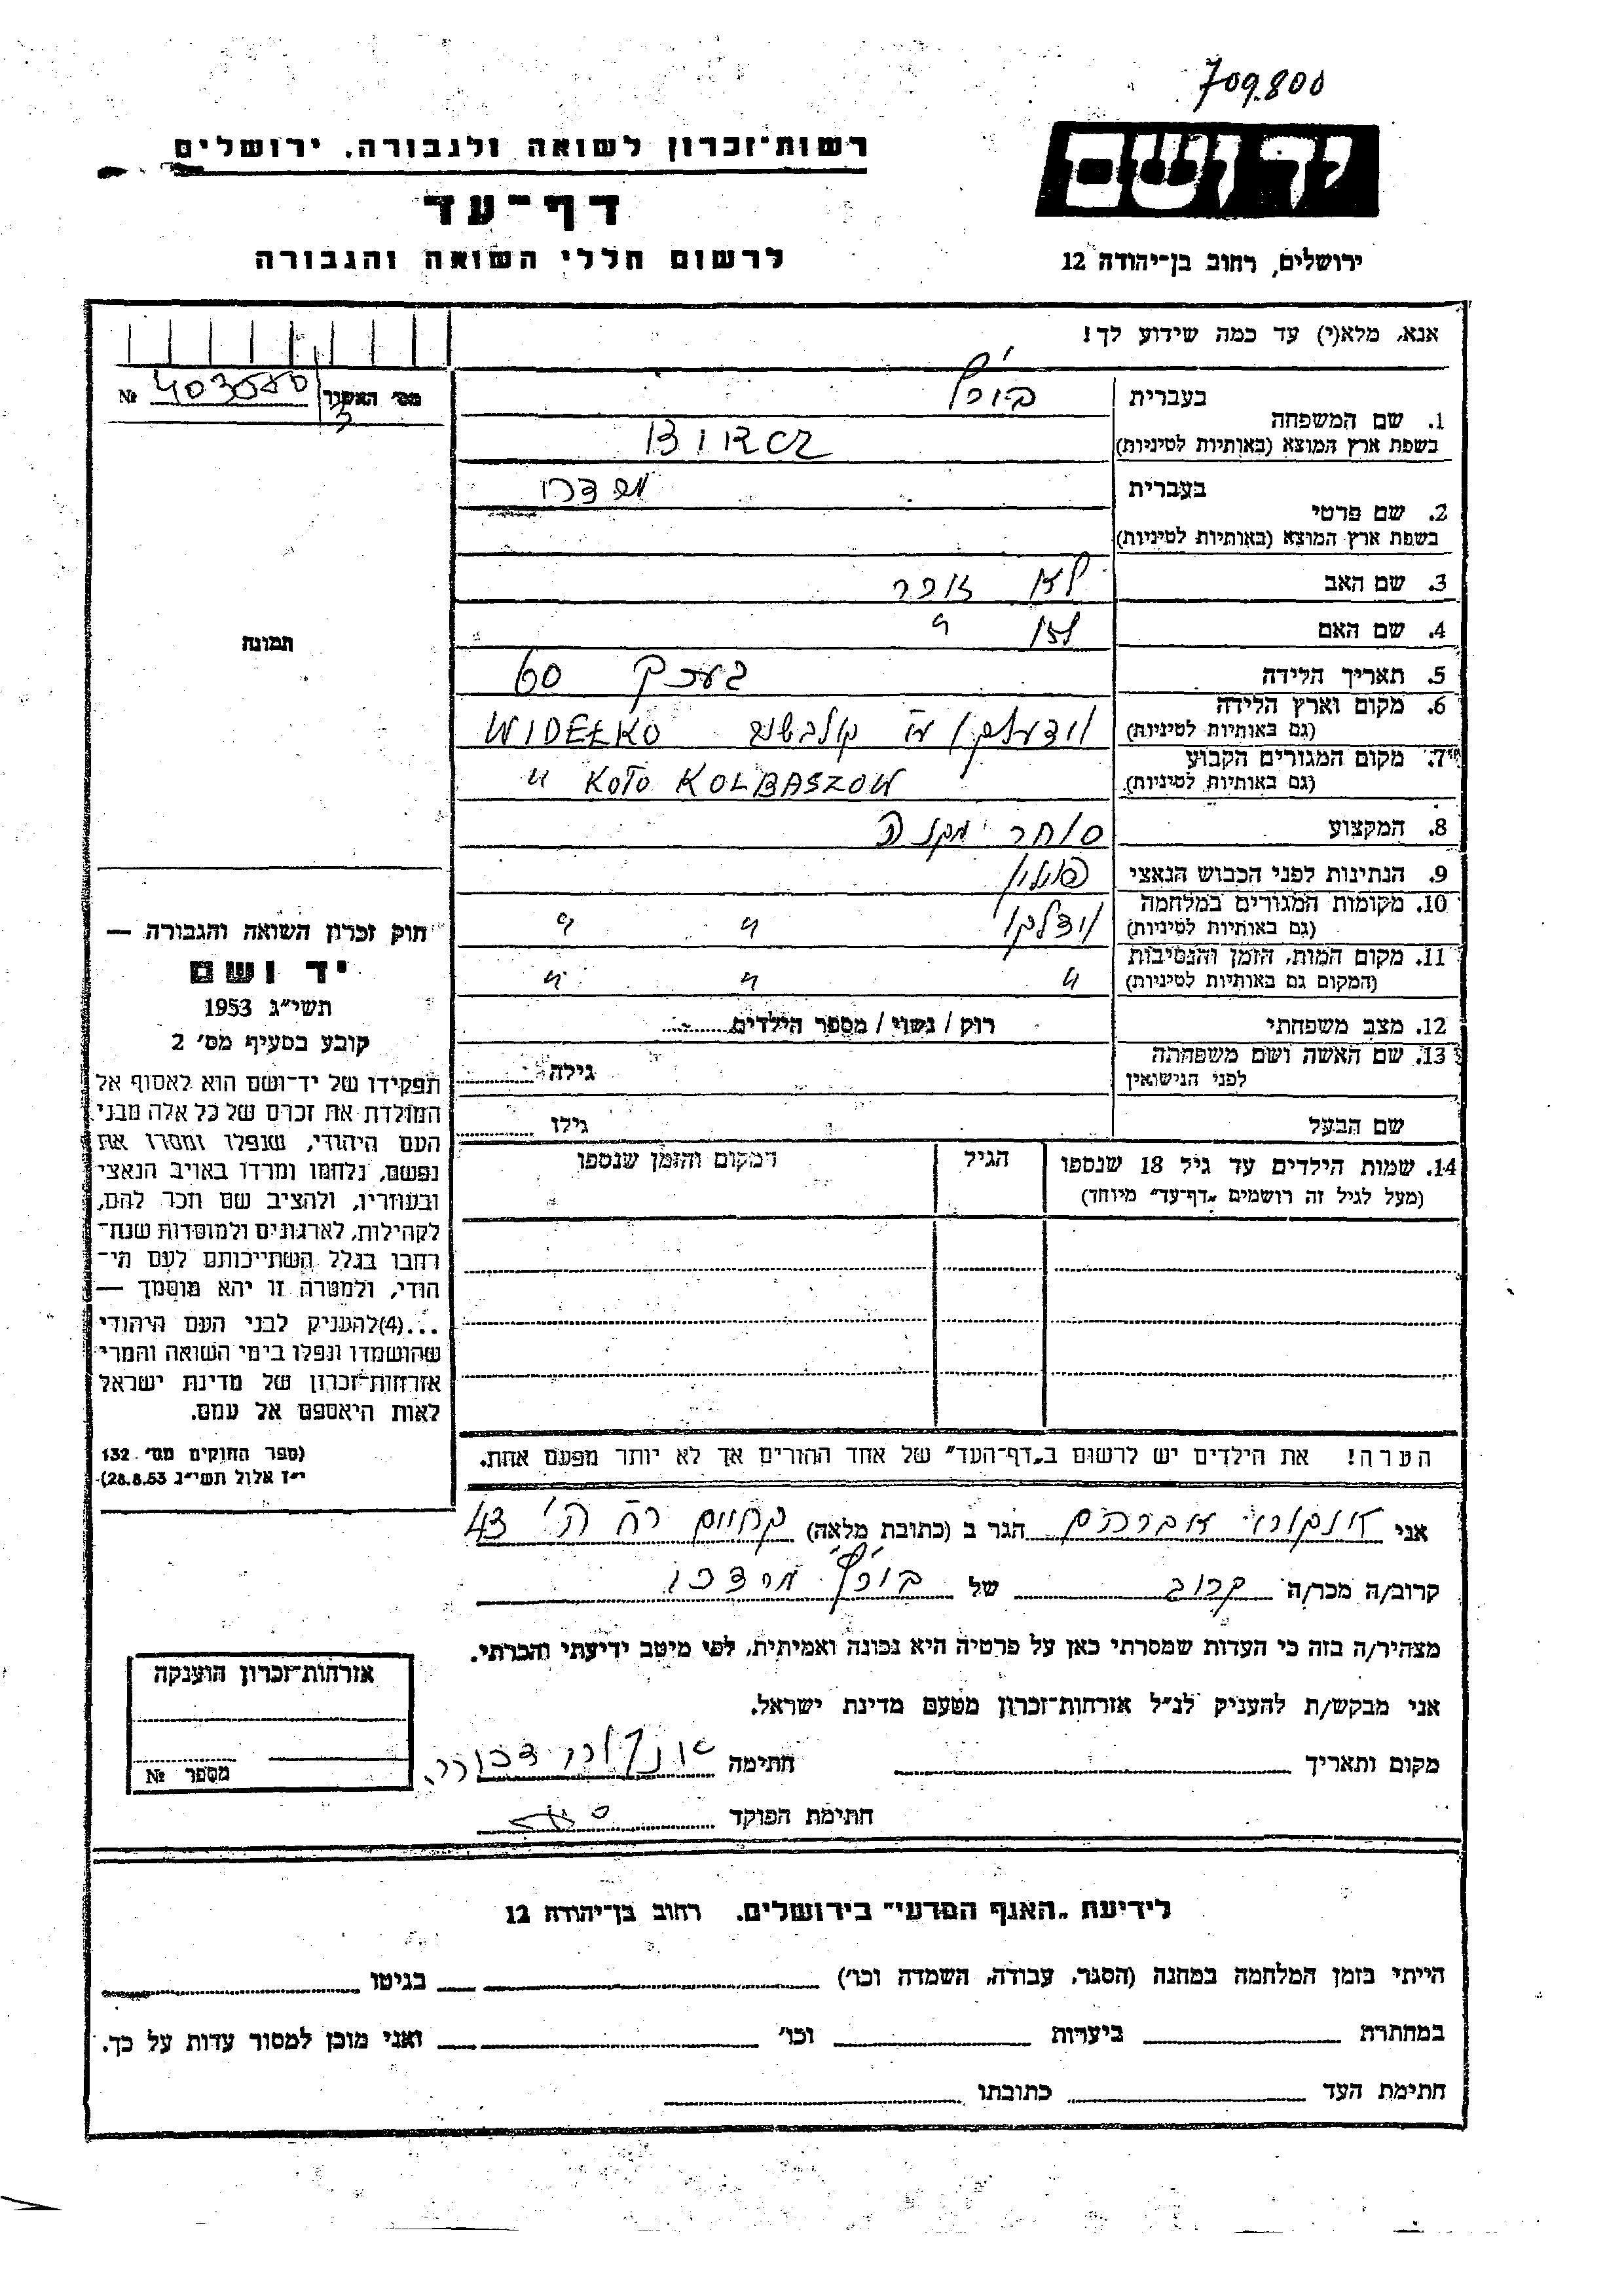 709.800
יד ושם
רשות־זכרון לשואה ולגבורה, ירושלים
דף־עד
לרשום חללי השואה והגבורה
ירושלים, רחוב בן־יהודה 12
אנא, מלא(י) עד כמה שידוע לך!
מס׳ האשור
№
1. שם המשפחה
בעברית
בשפת ארץ המוצא (באותיות לטיניות) BIRCZ
2. שם פרטי
בעברית
בשפת ארץ המוצא (באותיות לטיניות)
3. שם האב לא זוכר
4. שם האם לא "
5. תאריך הלידה בערך 60
6. מקום וארץ הלידה
(גם באותיות לטיניות) WIDEŁKO
7. מקום המגורים הקבוע
(גם באותיות לטיניות) " KOŁO KOLBASZOW
8. המקצוע סוחר
9. הנתינות לפני הכבוש הנאצי פולין
10. מקומות המגורים במלחמה
(גם באותיות לטיניות) " "
11. מקום המות, הזמן והנסיבות
(המקום גם באותיות לטיניות) " " "
12. מצב משפחתי רוק / נשוי / מספר הילדים
13. שם האשה ושם משפחתה
לפני הנישואין
גילה
שם הבעל
גילו
14. שמות הילדים עד גיל 18 שנספו
(מעל לגיל זה רושמים „דף־עד" מיוחד)
הגיל
המקום והזמן שנספו
הערה! את הילדים יש לרשום ב„דף־העד" של אחד ההורים אך לא יותר מפעם אחת.
תמונה
חוק זכרון השואה והגבורה —
יד ושם
תשי״ג 1953
קובע בסעיף מס׳ 2
תפקידו של יד־ושם הוא לאסוף אל
המולדת את זכרם של כל אלה מבני
העם היהודי, שנפלו ומסרו את
נפשם, נלחמו ומרדו באויב הנאצי
ובעוזריו, ולהציב שם וזכר להם,
לקהילות, לארגונים ולמוסדות שנח־
רבו בגלל השתייכותם לעם הי־
הודי, ולמטרה זו יהא מוסמך —
...(4)להעניק לבני העם היהודי
שהושמדו ונפלו בימי השואה והמרי
אזרחות־זכרון של מדינת ישראל
לאות היאספם אל עמם.
(ספר החוקים מס׳ 132.
י״ז אלול תשי״ג 28.8.53)
אני אברהם הגר ב (כתובת מלאה) 43
קרוב/ה מכר/ה קרוב של מרדכי
מצהיר/ה בזה כי העדות שמסרתי כאן על פרטיה היא נכונה ואמיתית, לפי מיטב ידיעתי והכרתי.
אני מבקש/ת להעניק לנ״ל אזרחות־זכרון מטעם מדינת ישראל.
מקום ותאריך
חתימה
חתימת הפוקד
אזרחות־זכרון הוענקה
מספר №
לידיעת „האגף המדעי" בירושלים. רחוב בן־יהודה 12
הייתי בזמן המלחמה במחנה (הסגר, עבודה, השמדה וכו׳) בגיטו
במחתרת ביערות וכו׳ ואני מוכן למסור עדות על כך.
חתימת העד כתובתו